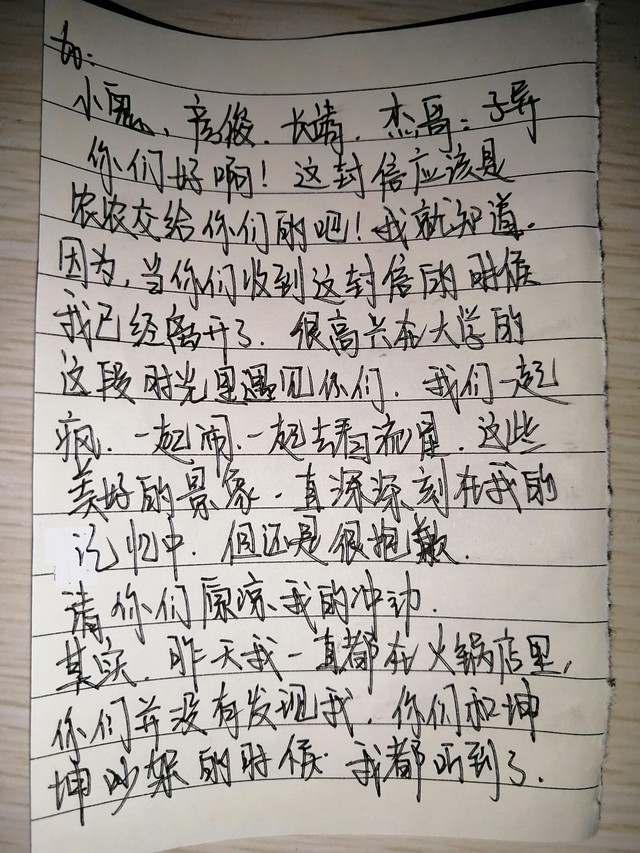 to:
小鬼、彦俊、长靖、杰哥、子异
你们好啊！这封信应该是
农农交给你们的吧！我就知道。
因为，当你们收到这封信的时候
我已经离开了。很高兴在大学的
这段时光里遇见你们。我们一起
疯、一起闹、一起去看流星。这些
美好的景象一直深深刻在我的
记忆中。但还是很抱歉。
请你们原谅我的冲动。
其实，昨天我一直都在火锅店里，
你们并没有发现我。你们和坤
坤吵架的时候 我都听到了。